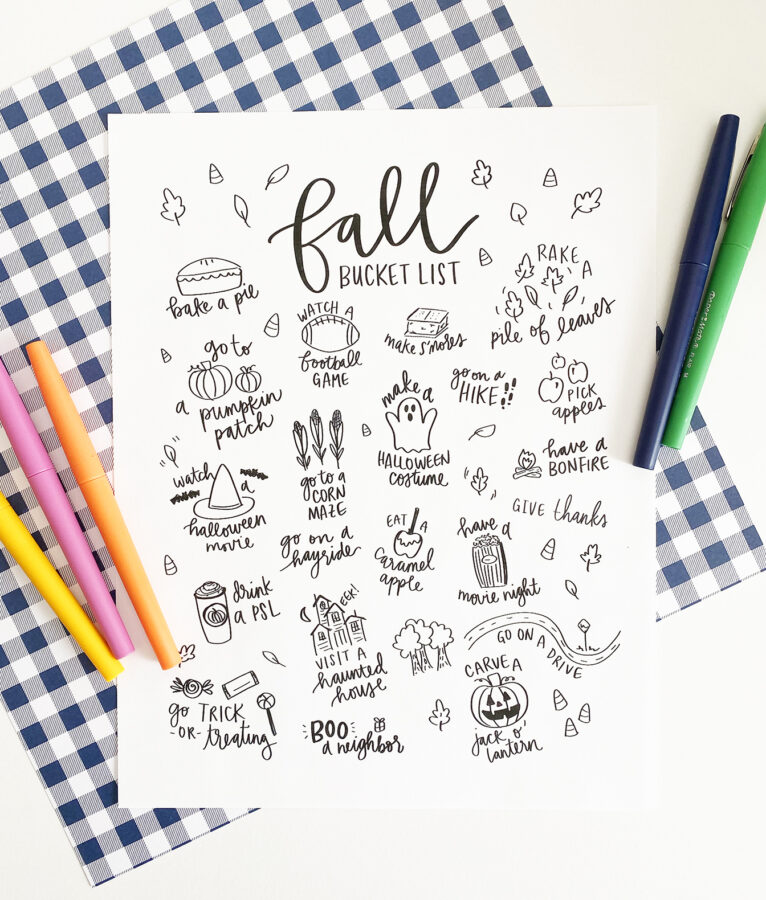 fall
BUCKET LIST
bake a pie
WATCH A
football
GAME
make s'mores
RAKE
A
pile of leaves
go to
a pumpkin
patch
go on a
HIKE
PICK
apples
make a
HALLOWEEN
costume
go to a
CORN
MAZE
have a
BONFIRE
watch
a
halloween
movie
GIVE thanks
go on a
hayride
EAT A
caramel
apple
have a
movie night
drink
a PSL
EEK!
VISIT A
haunted
house
GO ON A DRIVE
go TRICK
-OR-treating
BOO
a neighbor
CARVE A
jack o'
lantern